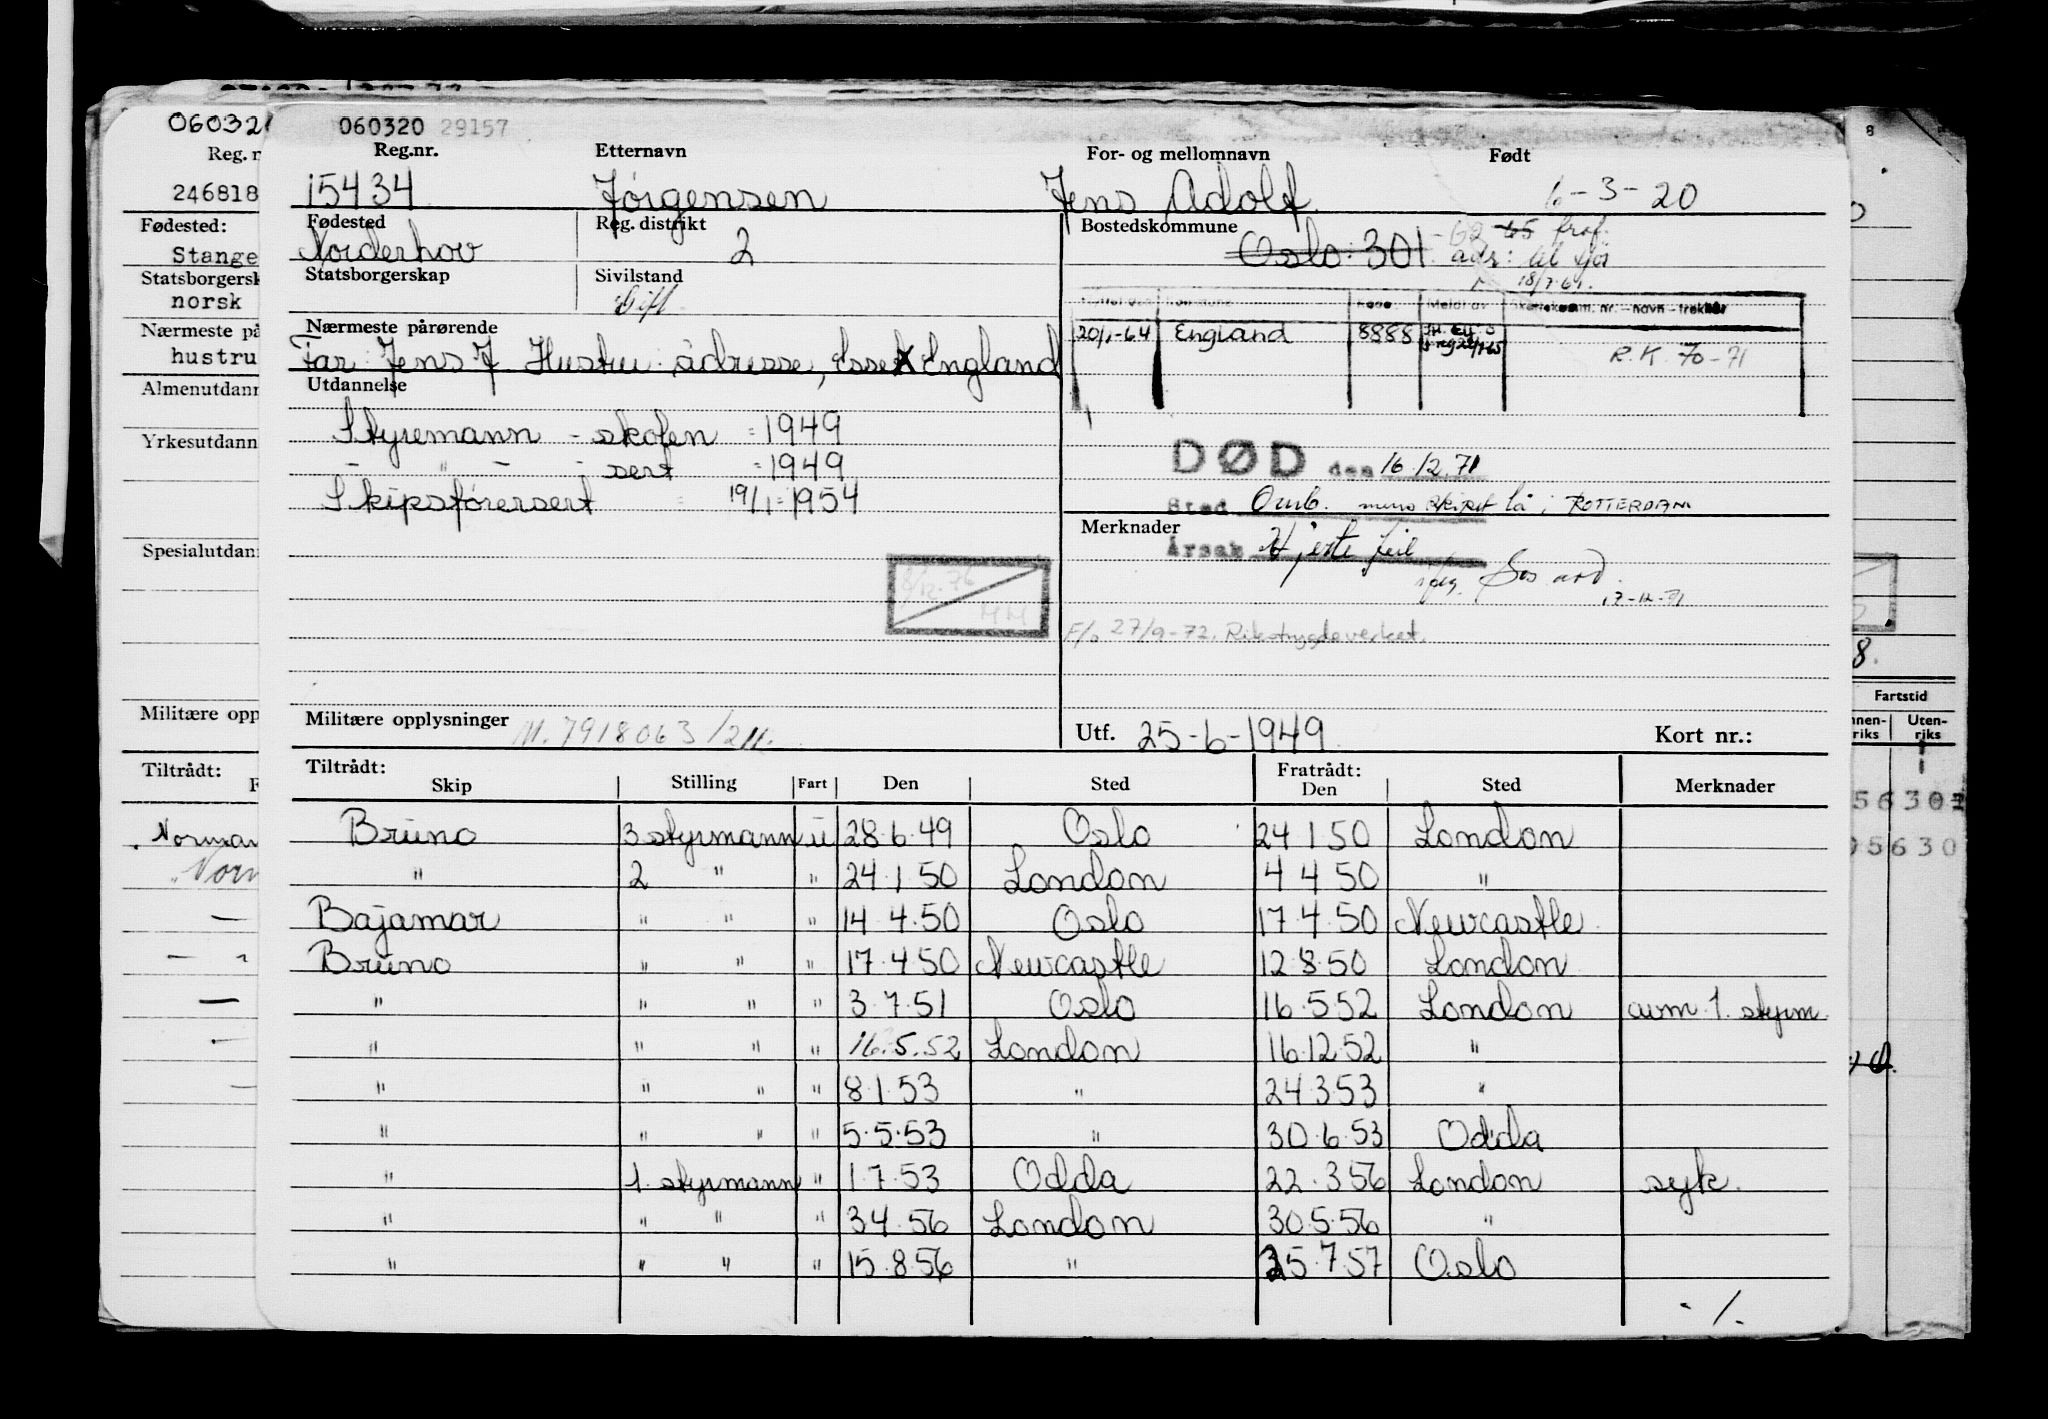 060320 29157
Reg.nr. Etternavn For- og mellomnavn Født
15434 Jørgensen Jens Adolf 6-3-20
Fødested Reg. distrikt Bostedskommune
Norderhov 2 Oslo 301
Statsborgerskap Sivilstand
Gift 18/7-69.
Nærmeste pårørende
Far Jens J Hustru adresse, Essex England
20/1-64 England 8888
R.K. 70-71
Utdannelse
Styremann - skolen = 1949
- " - - sert = 1949
Skipsførersert = 19/1 = 1954
DØD den 16.12.71
Sted Omb. mens skipet lå i ROTTERDAM
Merknader
Årsak Hjertefeil
17-12-71
27/9-72. Rikstrygdeverket.
8/12.76
MM
Militære opplysninger M. 7918063/2M.
Utf. 25-6-1949 Kort nr.:
Tiltrådt: Fratrådt:
Skip Stilling Fart Den Sted Den Sted Merknader
Bruno 3 styrmann u 28.6.49 Oslo 24 1 50 London
" 2 " " 24.1.50 London 4 4 50 "
Bajamar " " " 14 4.50 Oslo 17.4.50 Newcastle
Bruno " " " 17.4.50 Newcastle 12.8.50 London
" " " " 3.7.51 Oslo 16.5.52 London avm. 1. styrm.
" " " " 16.5.52 London 16.12.52 "
" " " " 8.1.53 " 24.3.53 "
" " " " 5.5.53 " 30.6.53 Odda
" 1. styrmann " 1.7.53 Odda 22.3.56 London syk.
" " " " 3.4.56 London 30.5.56 "
" " " " 15.8.56 " 25.7.57 Oslo
./.
060320
Reg. n
246818
Fødested:
Stange
Statsborgersk
norsk
Nærmeste på
hustru
Almenutdann
Yrkesutdann
Spesialutdan
Militære opp
Tiltrådt:
Norman
Norm
8
8.
Fartstid
nnen-
riks
Uten-
riks
5630
05630